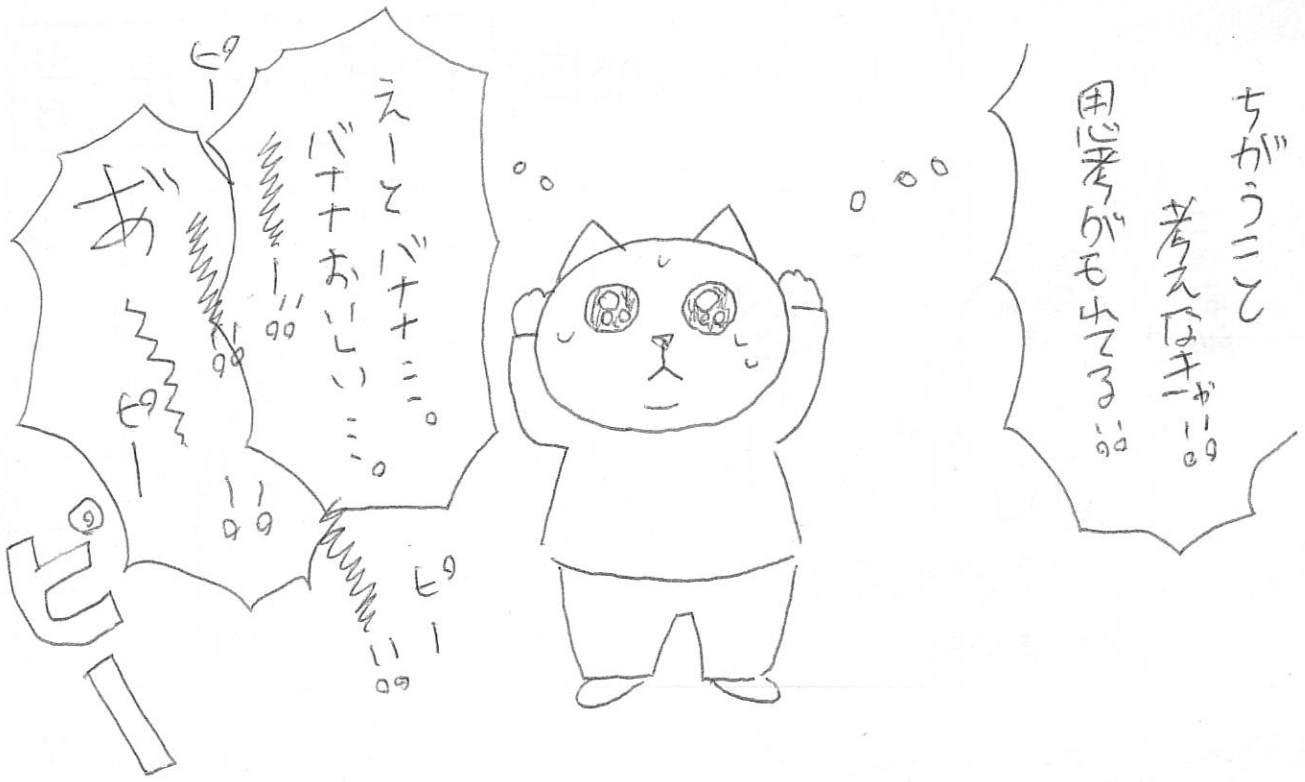 ちがうこと
考えなきゃ!!
思考がモれてる!!
えーとバナナ…。
バナナおいしい…。
ー!!
ピー
!!
あ゛
ピー
!!
ピー
!!
ピー